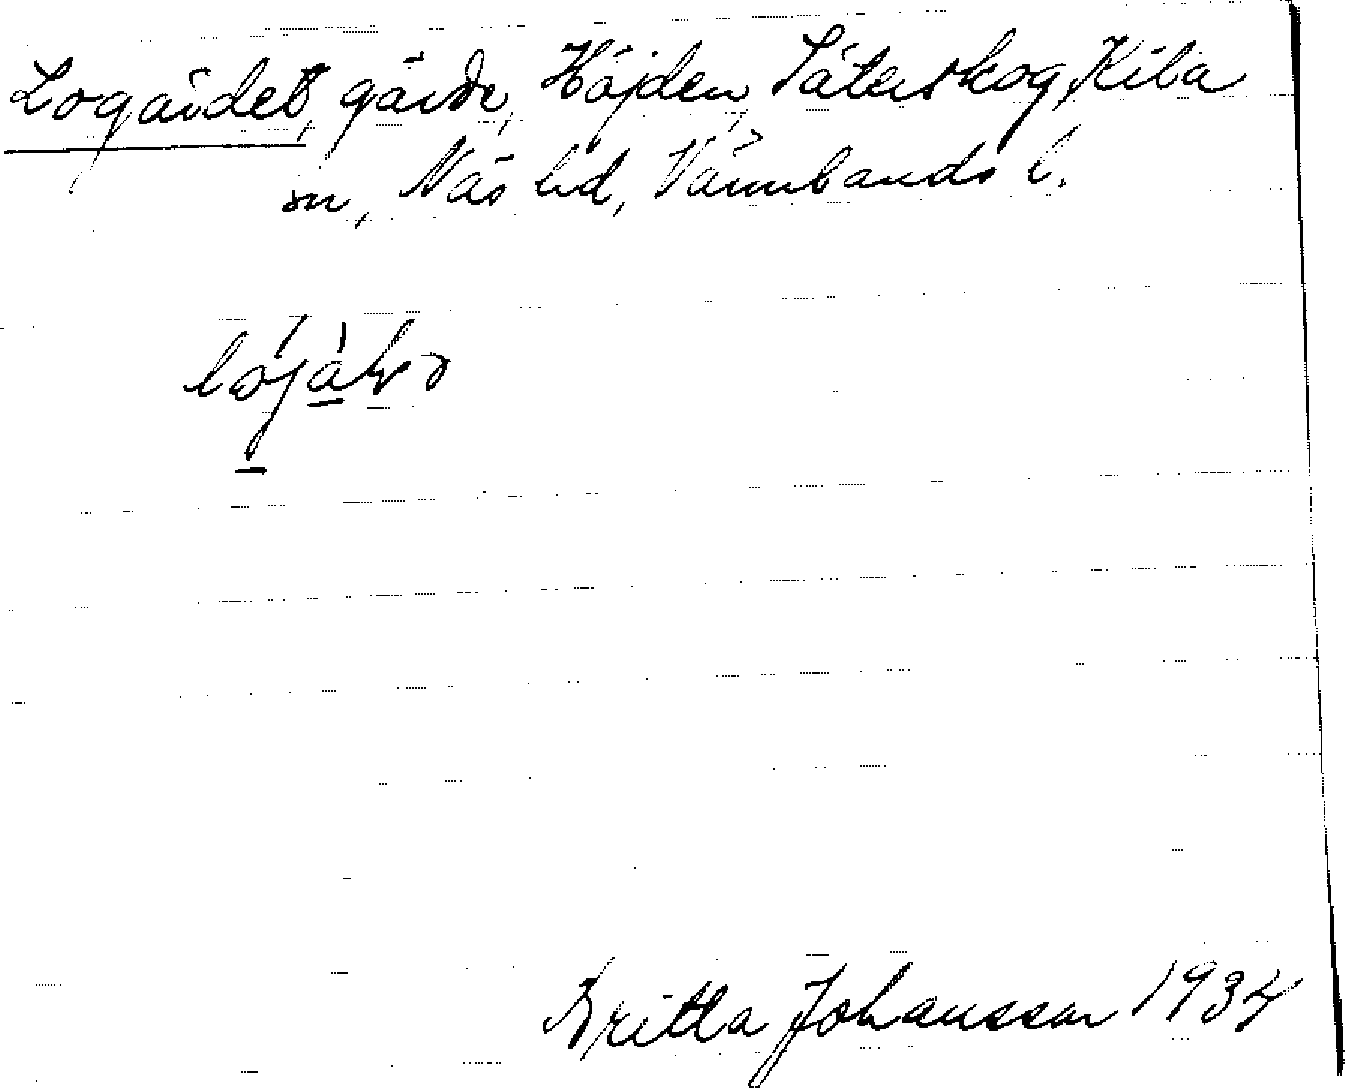 Logärdet, gärde, Höjden, Säterskog, Kila
sn, Näs hd, Värmlands l.
Britta Johansson 1934